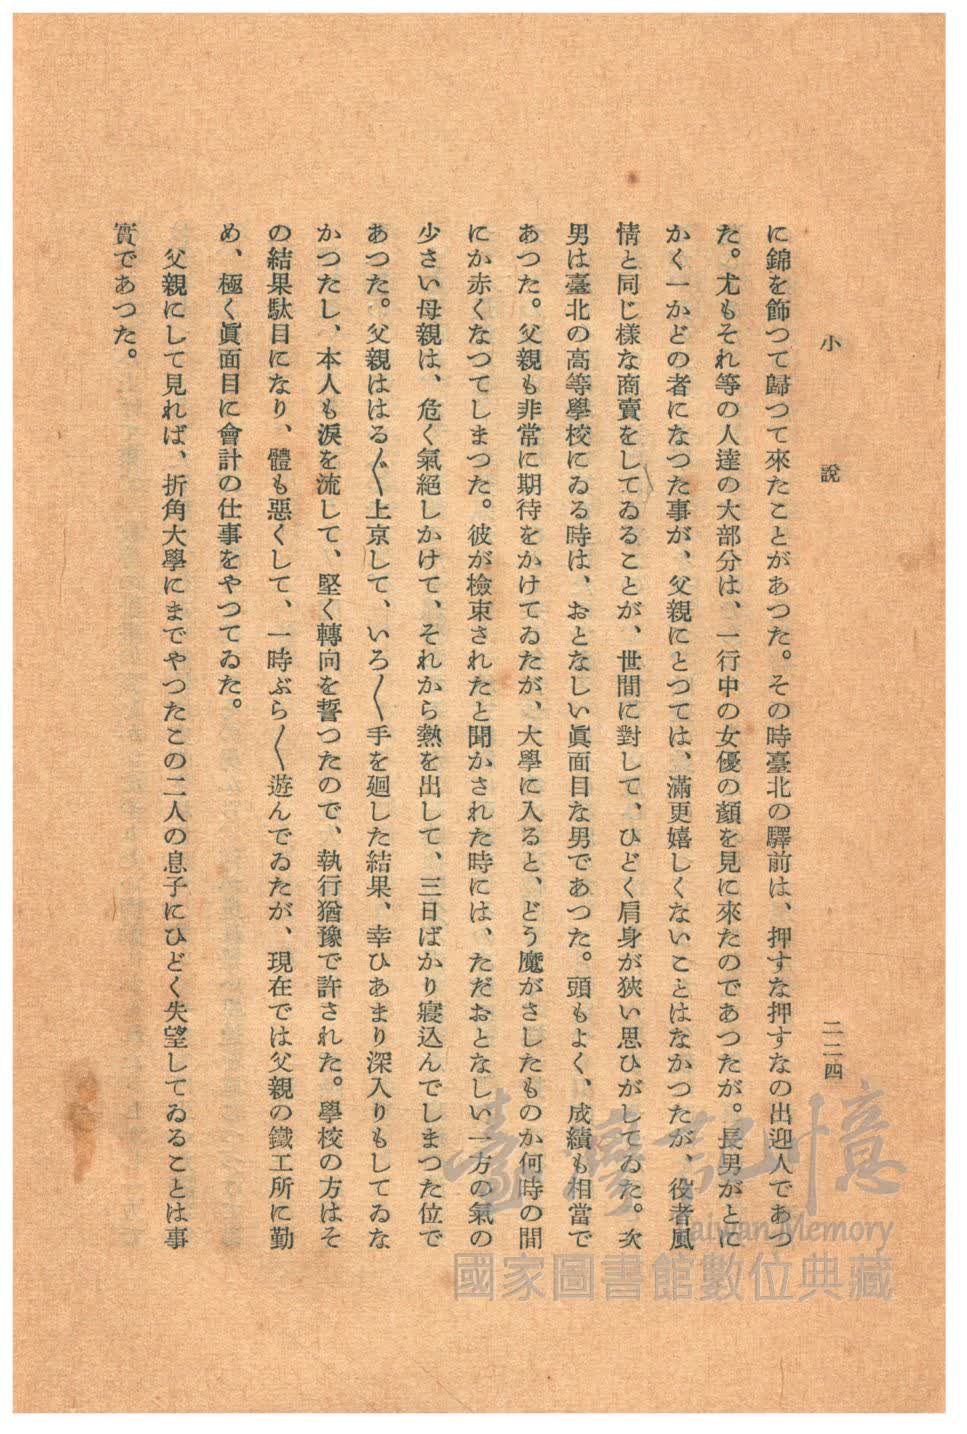 小說
二二四
に錦を飾つて歸つて來たことがあつた。その時臺北の驛前は、押すな押すなの出迎人であつ
た。尤もそれ等の人達の大部分は、一行中の女優の顏を見に來たのであつたが。長男がとに
かく一かどの者になつた事が、父親にとつては、滿更嬉しくないことはなかつたが、役者風
情と同じ樣な商賣をしてゐることが、世間に對して、ひどく肩身が狹い思ひがしてゐた。次
男は臺北の高等學校にゐる時は、おとなしい眞面目な男であつた。頭もよく、成績も相當で
あつた。父親も非常に期待をかけてゐたが、大學に入ると、どう魔がさしたものか何時の間
にか赤くなつてしまつた。彼が檢束されたと聞かされた時には、ただおとなしい一方の氣の
少さい母親は、危く氣絕しかけて、それから熱を出して、三日ばかり寢込んでしまつた位で
あつた。父親ははる〲上京して、いろ〱手を廻した結果、幸ひあまり深入りもしてゐな
かつたし、本人も淚を流して、堅く轉向を誓つたので、執行猶豫で許された。學校の方はそ
の結果駄目になり、體も惡くして、一時ぶら〱遊んでゐたが、現在では父親の鐵工所に勤
め、極く眞面目に會計の仕事をやつてゐた。
父親にして見れば、折角大學にまでやつたこの二人の息子にひどく失望してゐることは事
實であつた。
臺灣記憶
Taiwan Memory
國家圖書館數位典藏